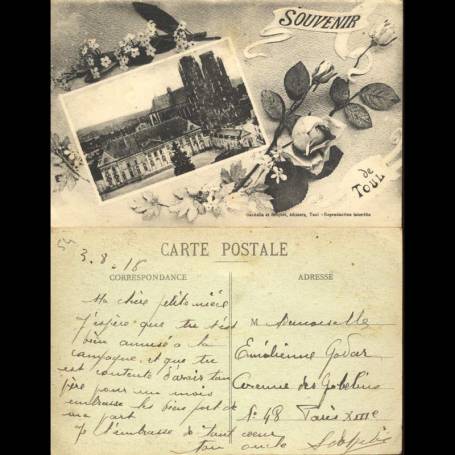 SOUVENIR
de
TOUL
éditeurs, Toul - Reproduction interdite
3.8.16
CARTE POSTALE
CORRESPONDANCE
ADRESSE
Ma chère petite nièce
J'espère que tu t'es
bien amusé a la
campagne et que tu
est contente d'avoir ton
père pour un mois
embrasse les bien fort de
ma part
Je t'embrasse de tout coeur
ton oncle
M Demoiselle
Emilienne
Avenue des Gobelins
N° 48 Paris XIIIe